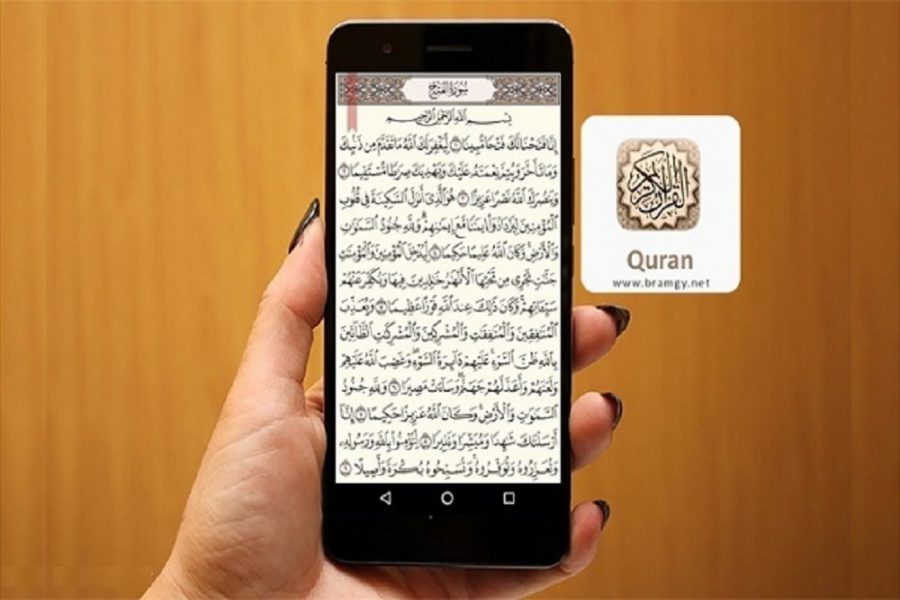 سُورَةُ الفَتْحِ
بِسْمِ اللَّهِ الرَّحْمَٰنِ الرَّحِيمِ
إِنَّا فَتَحْنَا لَكَ فَتْحًا مُّبِينًا ١ لِّيَغْفِرَ لَكَ اللَّهُ مَا تَقَدَّمَ مِن ذَنۢبِكَ
وَمَا تَأَخَّرَ وَيُتِمَّ نِعْمَتَهُۥ عَلَيْكَ وَيَهْدِيَكَ صِرَٰطًا مُّسْتَقِيمًا ٢
وَيَنصُرَكَ اللَّهُ نَصْرًا عَزِيزًا ٣ هُوَ الَّذِىٓ أَنزَلَ السَّكِينَةَ فِى قُلُوبِ
الْمُؤْمِنِينَ لِيَزْدَادُوٓا۟ إِيمَٰنًا مَّعَ إِيمَٰنِهِمْ ۗ وَلِلَّهِ جُنُودُ السَّمَٰوَٰتِ
وَالْأَرْضِ ۚ وَكَانَ اللَّهُ عَلِيمًا حَكِيمًا ٤ لِّيُدْخِلَ الْمُؤْمِنِينَ وَالْمُؤْمِنَٰتِ
جَنَّٰتٍ تَجْرِى مِن تَحْتِهَا الْأَنْهَٰرُ خَٰلِدِينَ فِيهَا وَيُكَفِّرَ عَنْهُمْ
سَيِّـَٔاتِهِمْ ۚ وَكَانَ ذَٰلِكَ عِندَ اللَّهِ فَوْزًا عَظِيمًا ٥ وَيُعَذِّبَ
الْمُنَٰفِقِينَ وَالْمُنَٰفِقَٰتِ وَالْمُشْرِكِينَ وَالْمُشْرِكَٰتِ الظَّآنِّينَ
بِاللَّهِ ظَنَّ السَّوْءِ ۚ عَلَيْهِمْ دَآئِرَةُ السَّوْءِ ۖ وَغَضِبَ اللَّهُ عَلَيْهِمْ
وَلَعَنَهُمْ وَأَعَدَّ لَهُمْ جَهَنَّمَ ۖ وَسَآءَتْ مَصِيرًا ٦ وَلِلَّهِ جُنُودُ
السَّمَٰوَٰتِ وَالْأَرْضِ ۚ وَكَانَ اللَّهُ عَزِيزًا حَكِيمًا ٧ إِنَّآ
أَرْسَلْنَٰكَ شَٰهِدًا وَمُبَشِّرًا وَنَذِيرًا ٨ لِّتُؤْمِنُوا۟ بِاللَّهِ وَرَسُولِهِۦ
وَتُعَزِّرُوهُ وَتُوَقِّرُوهُ وَتُسَبِّحُوهُ بُكْرَةً وَأَصِيلًا ٩
القرآن الكريم
Quran
www.bramgy.net